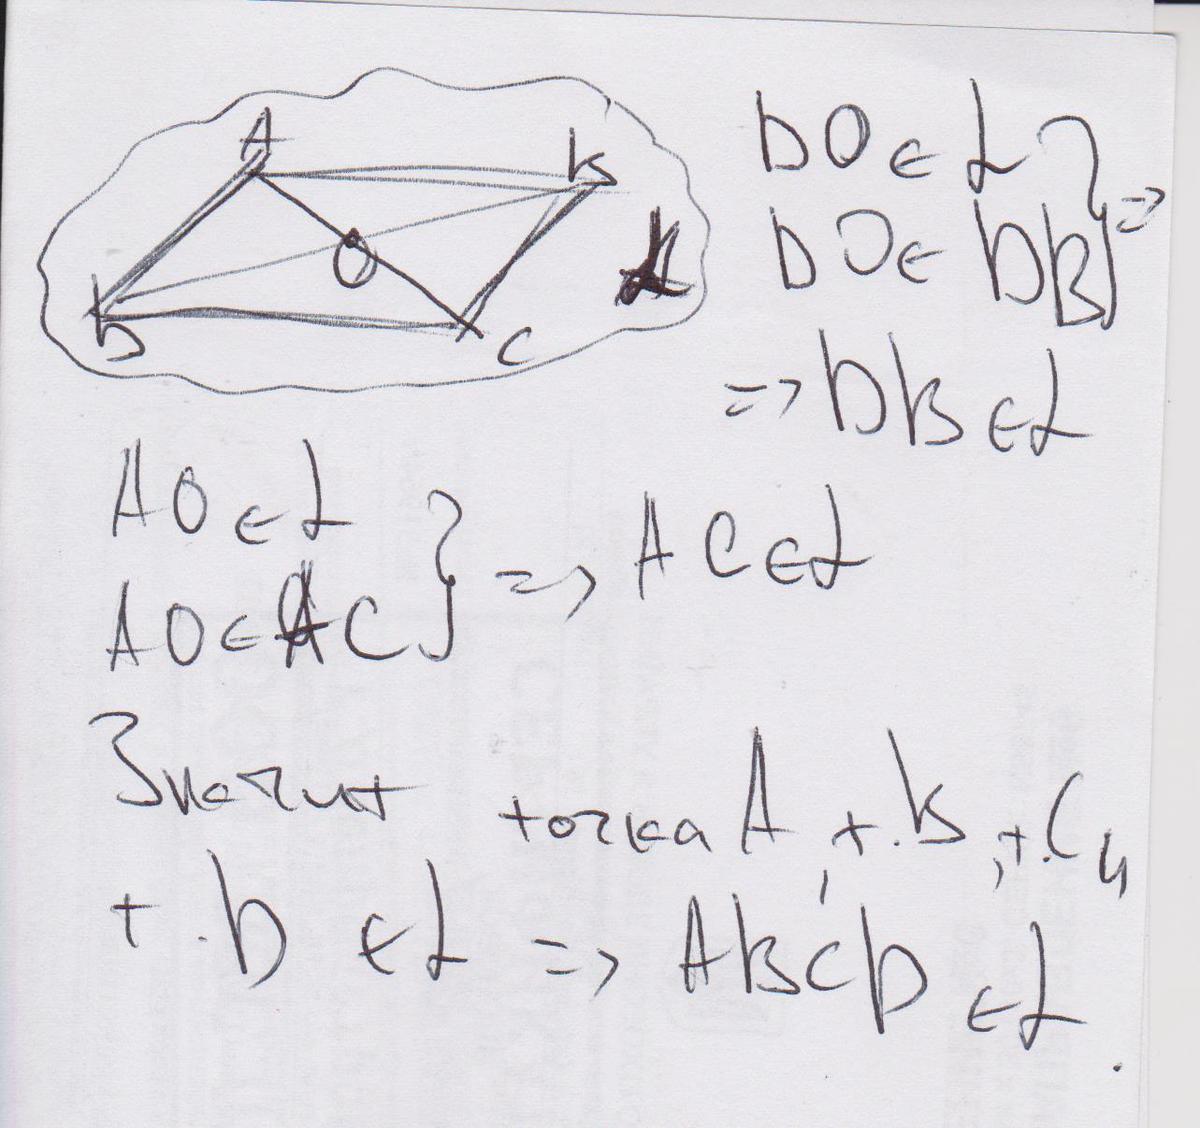 A
B
O
D
C
α
DO ∈ α
DO ∈ DB } =>
=> DB ∈ α
AO ∈ α
AO ∈ AC } => AC ∈ α
Значит точка A, т.B, т.C и
т.D ∈ α => ABCD ∈ α.